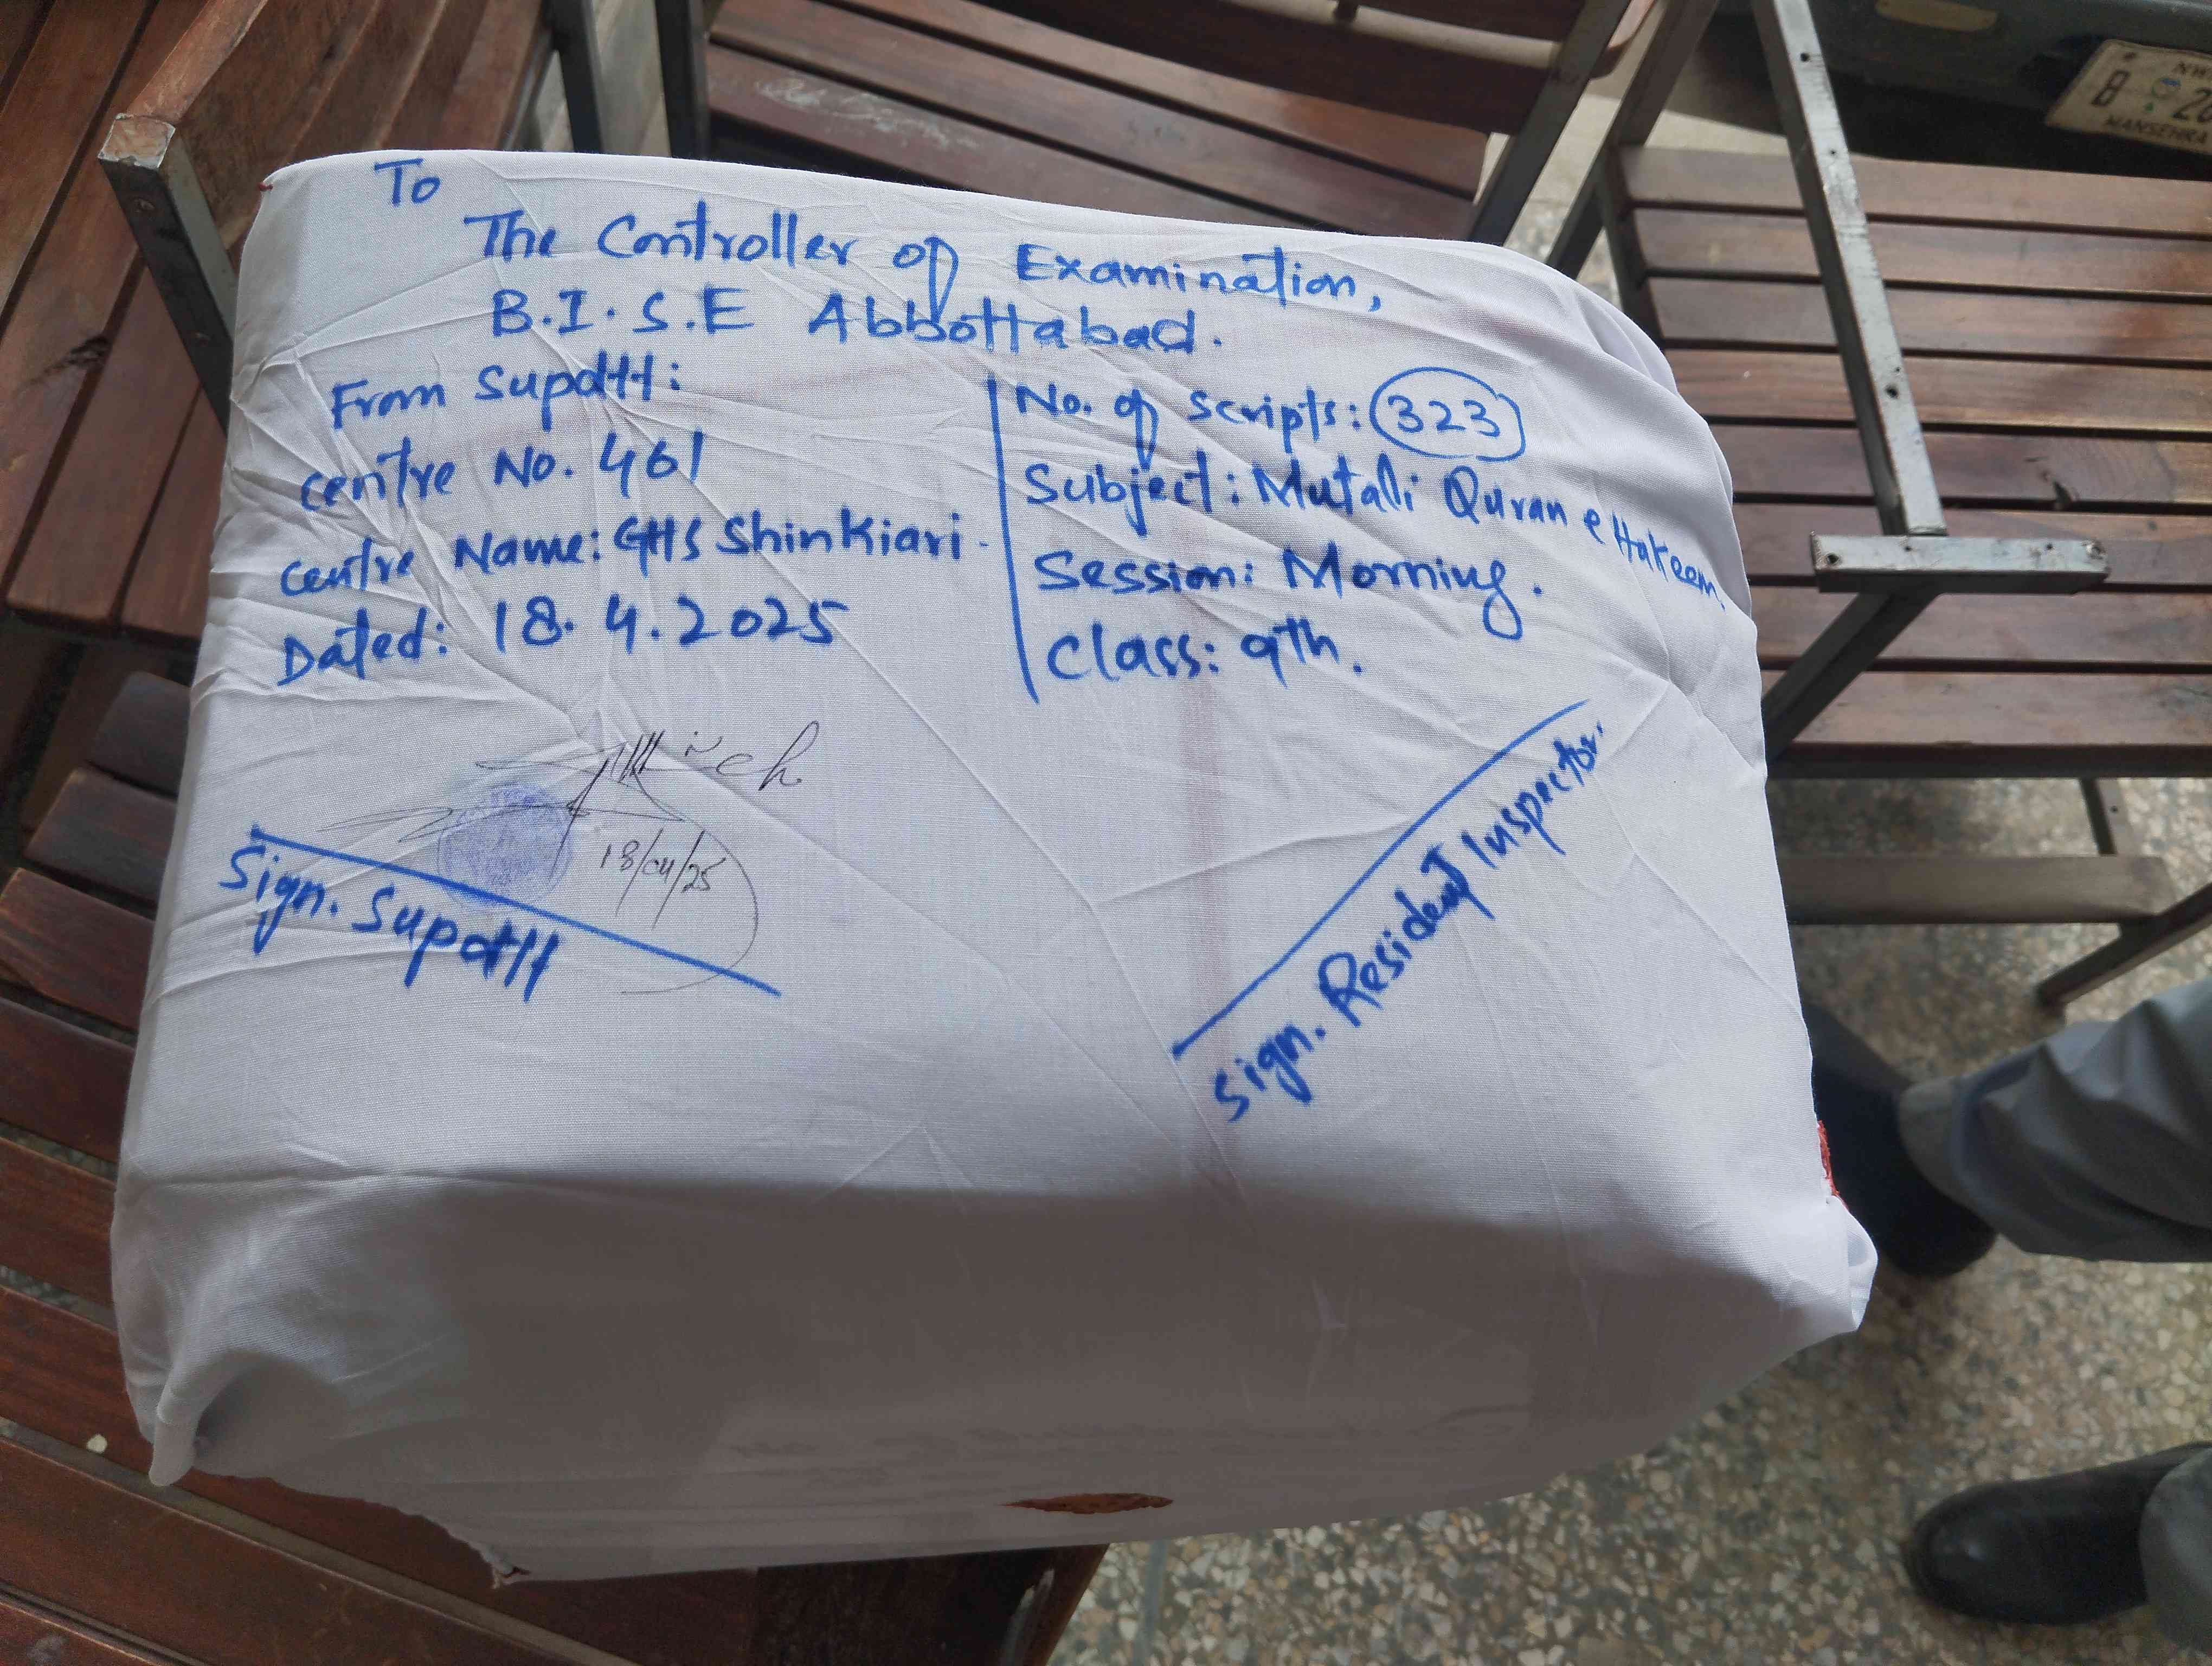 To
The Controller of Examination,
B.I.S.E Abbottabad.
From Supdtt:
centre No. 461
centre Name: GHS Shinkiari.
Dated: 18.4.2025
No. of scripts: 323
Subject: Mutali Quran e Hakeem.
Session: Morning.
Class: 9th.
18/04/25
Sign. Supdtt
Sign. Resident Inspector.
B 2
MANSEHRA